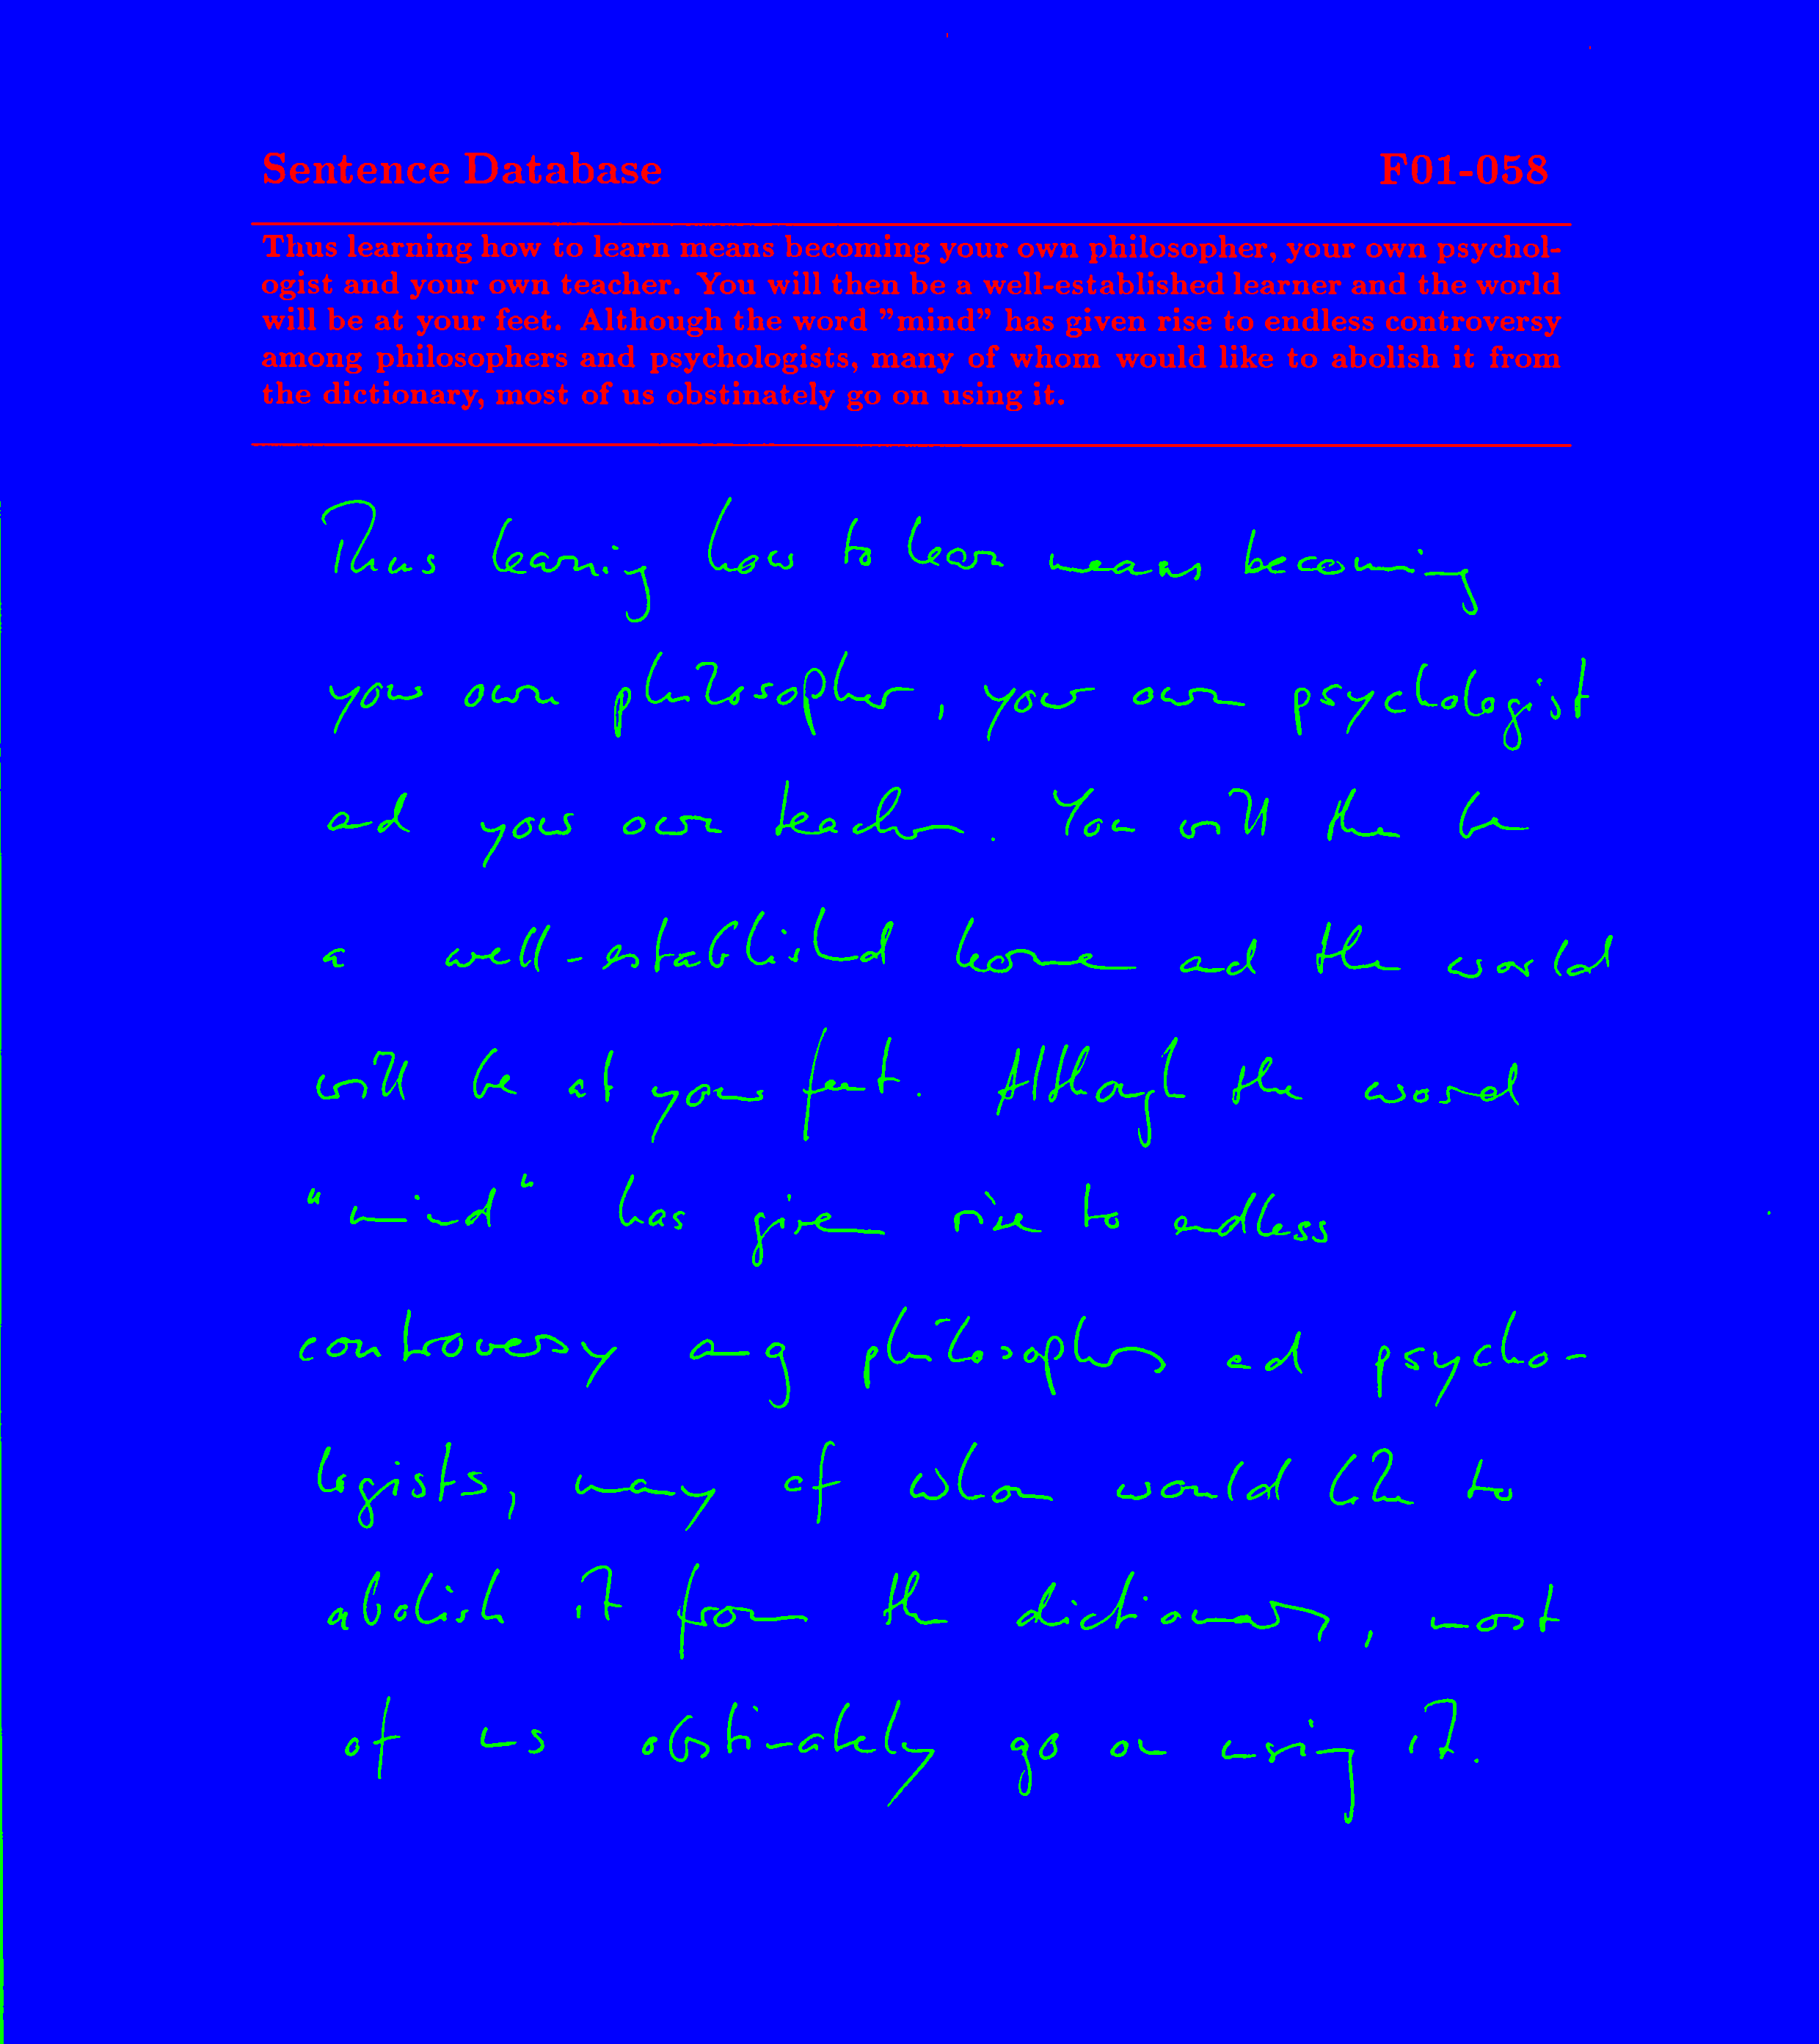 Sentence Database F01-058
Thus learning how to learn means becoming your own philosopher, your own psychol-
ogist and your own teacher. You will then be a well-established learner and the world
will be at your feet. Although the word "mind" has given rise to endless controversy
among philosophers and psychologists, many of whom would like to abolish it from
the dictionary, most of us obstinately go on using it.
Thus learning how to learn means becoming
your own philosopher, your own psychologist
and your own teacher. You will then be
a well-established learner and the world
will be at your feet. Although the word
"mind" has given rise to endless
controversy among philosophers and psycho-
logists, many of whom would like to
abolish it from the dictionary, most
of us obstinately go on using it.